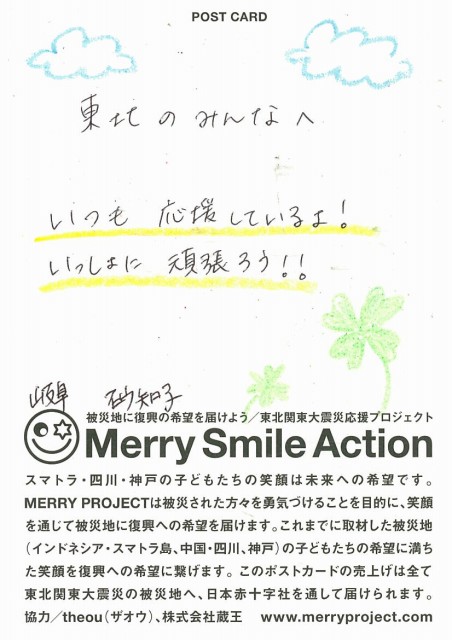 POST CARD
東北のみんなへ
いつも 応援しているよ!
いっしょに 頑張ろう!!
岐阜 砂知子
被災地に復興の希望を届けよう/東北関東大震災応援プロジェクト
Merry Smile Action
スマトラ・四川・神戸の子どもたちの笑顔は未来への希望です。
MERRY PROJECTは被災された方々を勇気づけることを目的に、笑顔
を通じて被災地に復興への希望を届けます。これまでに取材した被災地
(インドネシア・スマトラ島、中国・四川、神戸)の子どもたちの希望に満ち
た笑顔を復興への希望に繋げます。このポストカードの売上げは全て
東北関東大震災の被災地へ、日本赤十字社を通して届けられます。
協力/theou(ザオウ)、株式会社蔵王 www.merryproject.com